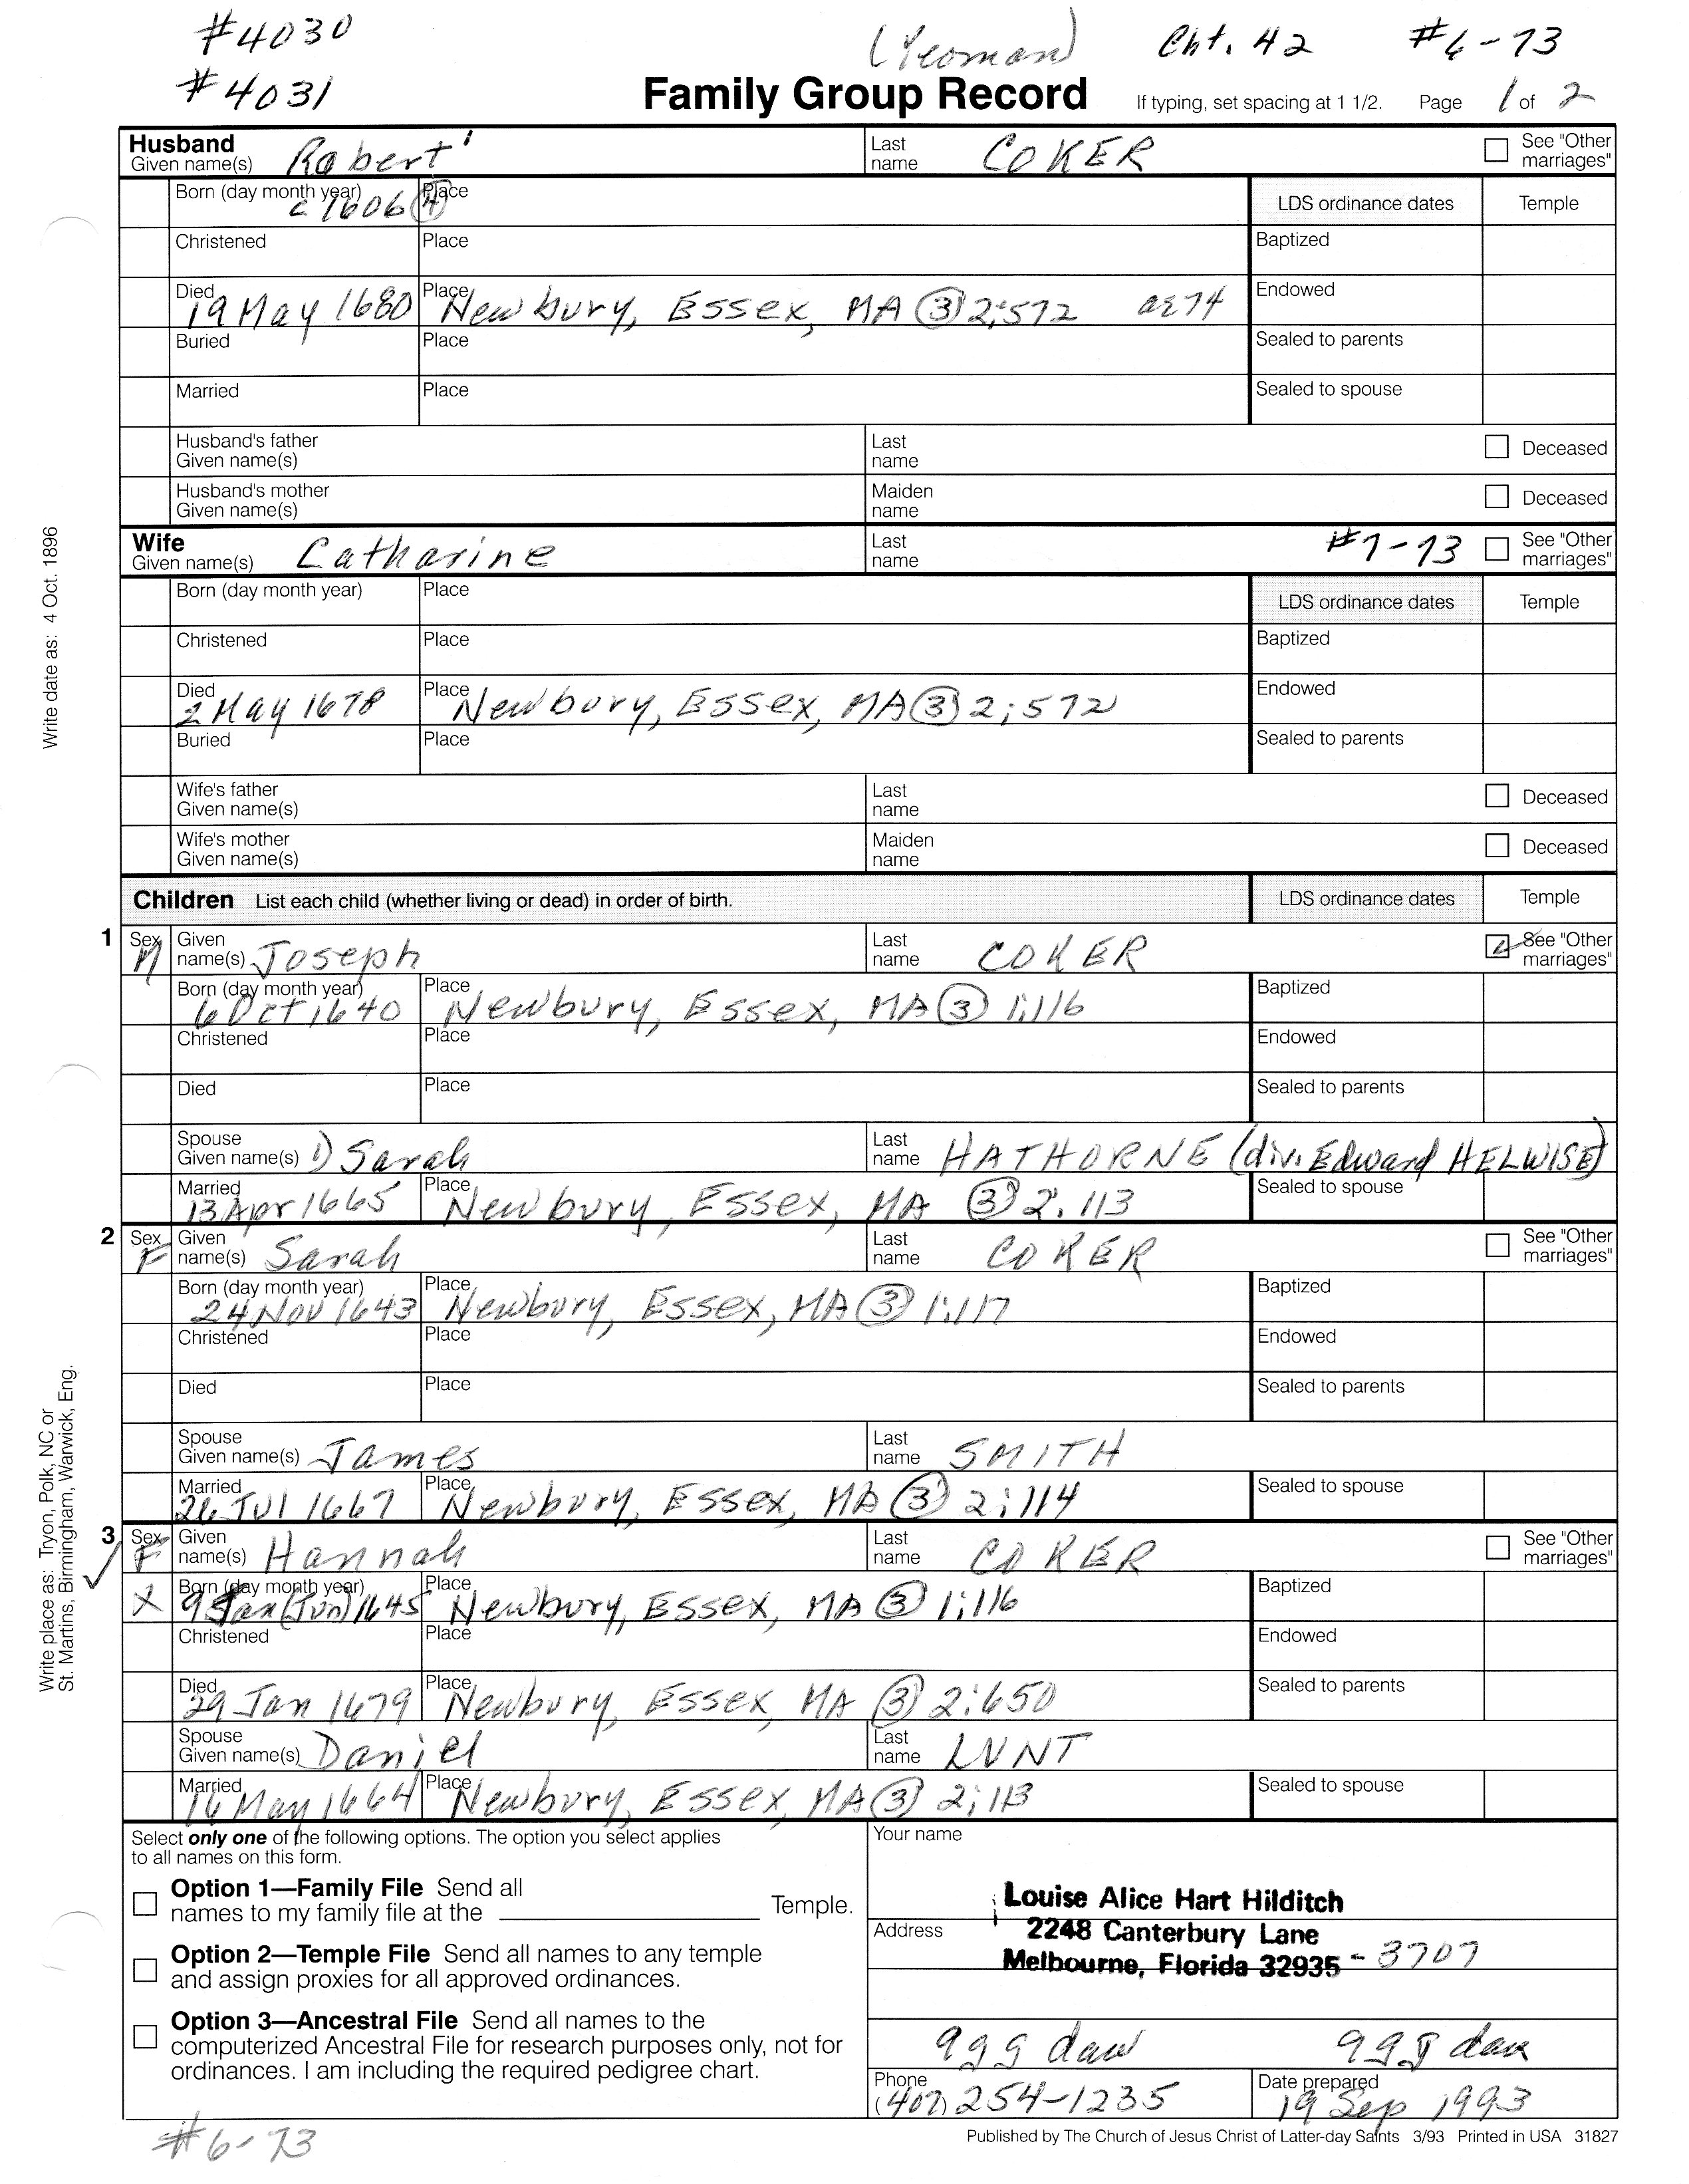 #4030
(Yeoman) Cht. 42 #6-73
#4031
Family Group Record If typing, set spacing at 1 1/2. Page 1 of 2
Husband
Given name(s) Robert¹ Last name COKER See "Other marriages"
Born (day month year) c 1606 ④ Place LDS ordinance dates Temple
Christened Place Baptized
Died 19 May 1680 Place Newbury, Essex, MA ③ 2:572 ae 74 Endowed
Buried Place Sealed to parents
Married Place Sealed to spouse
Husband's father Given name(s) Last name Deceased
Husband's mother Given name(s) Maiden name Deceased
Wife
Given name(s) Catharine Last name #7-73 See "Other marriages"
Born (day month year) Place LDS ordinance dates Temple
Christened Place Baptized
Died 2 May 1678 Place Newbury, Essex, MA ③ 2;572 Endowed
Buried Place Sealed to parents
Wife's father Given name(s) Last name Deceased
Wife's mother Given name(s) Maiden name Deceased
Children List each child (whether living or dead) in order of birth. LDS ordinance dates Temple
1 Sex M Given name(s) Joseph Last name COKER See "Other marriages"
Born (day month year) 6 Oct 1640 Place Newbury, Essex, MA ③ 1:116 Baptized
Christened Place Endowed
Died Place Sealed to parents
Spouse Given name(s) 1) Sarah Last name HATHORNE (div. Edward HELWISE)
Married 13 Apr 1665 Place Newbury, Essex, MA ③ 2:113 Sealed to spouse
2 Sex F Given name(s) Sarah Last name COKER See "Other marriages"
Born (day month year) 24 Nov 1643 Place Newbury, Essex, MA ③ 1:117 Baptized
Christened Place Endowed
Died Place Sealed to parents
Spouse Given name(s) James Last name SMITH
Married 26 Jul 1667 Place Newbury, Essex, MA ③ 2:114 Sealed to spouse
3 Sex F Given name(s) Hannah Last name COKER See "Other marriages"
X Born (day month year) 9 Jan (Jun) 1645 Place Newbury, Essex, MA ③ 1:116 Baptized
Christened Place Endowed
Died 29 Jan 1679 Place Newbury, Essex, MA ③ 2:650 Sealed to parents
Spouse Given name(s) Daniel Last name LUNT
Married 16 May 1664 Place Newbury, Essex, MA ③ 2;113 Sealed to spouse
Select only one of the following options. The option you select applies
to all names on this form.
Option 1—Family File Send all
names to my family file at the Temple.
Option 2—Temple File Send all names to any temple
and assign proxies for all approved ordinances.
Option 3—Ancestral File Send all names to the
computerized Ancestral File for research purposes only, not for
ordinances. I am including the required pedigree chart.
Your name
Louise Alice Hart Hilditch
Address 2248 Canterbury Lane
Melbourne, Florida 32935 - 3707
9gg dau 9gg dau
Phone (407) 254-1235 Date prepared 19 Sep 1993
Published by The Church of Jesus Christ of Latter-day Saints 3/93 Printed in USA 31827
#6-73
Write date as: 4 Oct. 1896
Write place as: Tryon, Polk, NC or
St. Martins, Birmingham, Warwick, Eng.